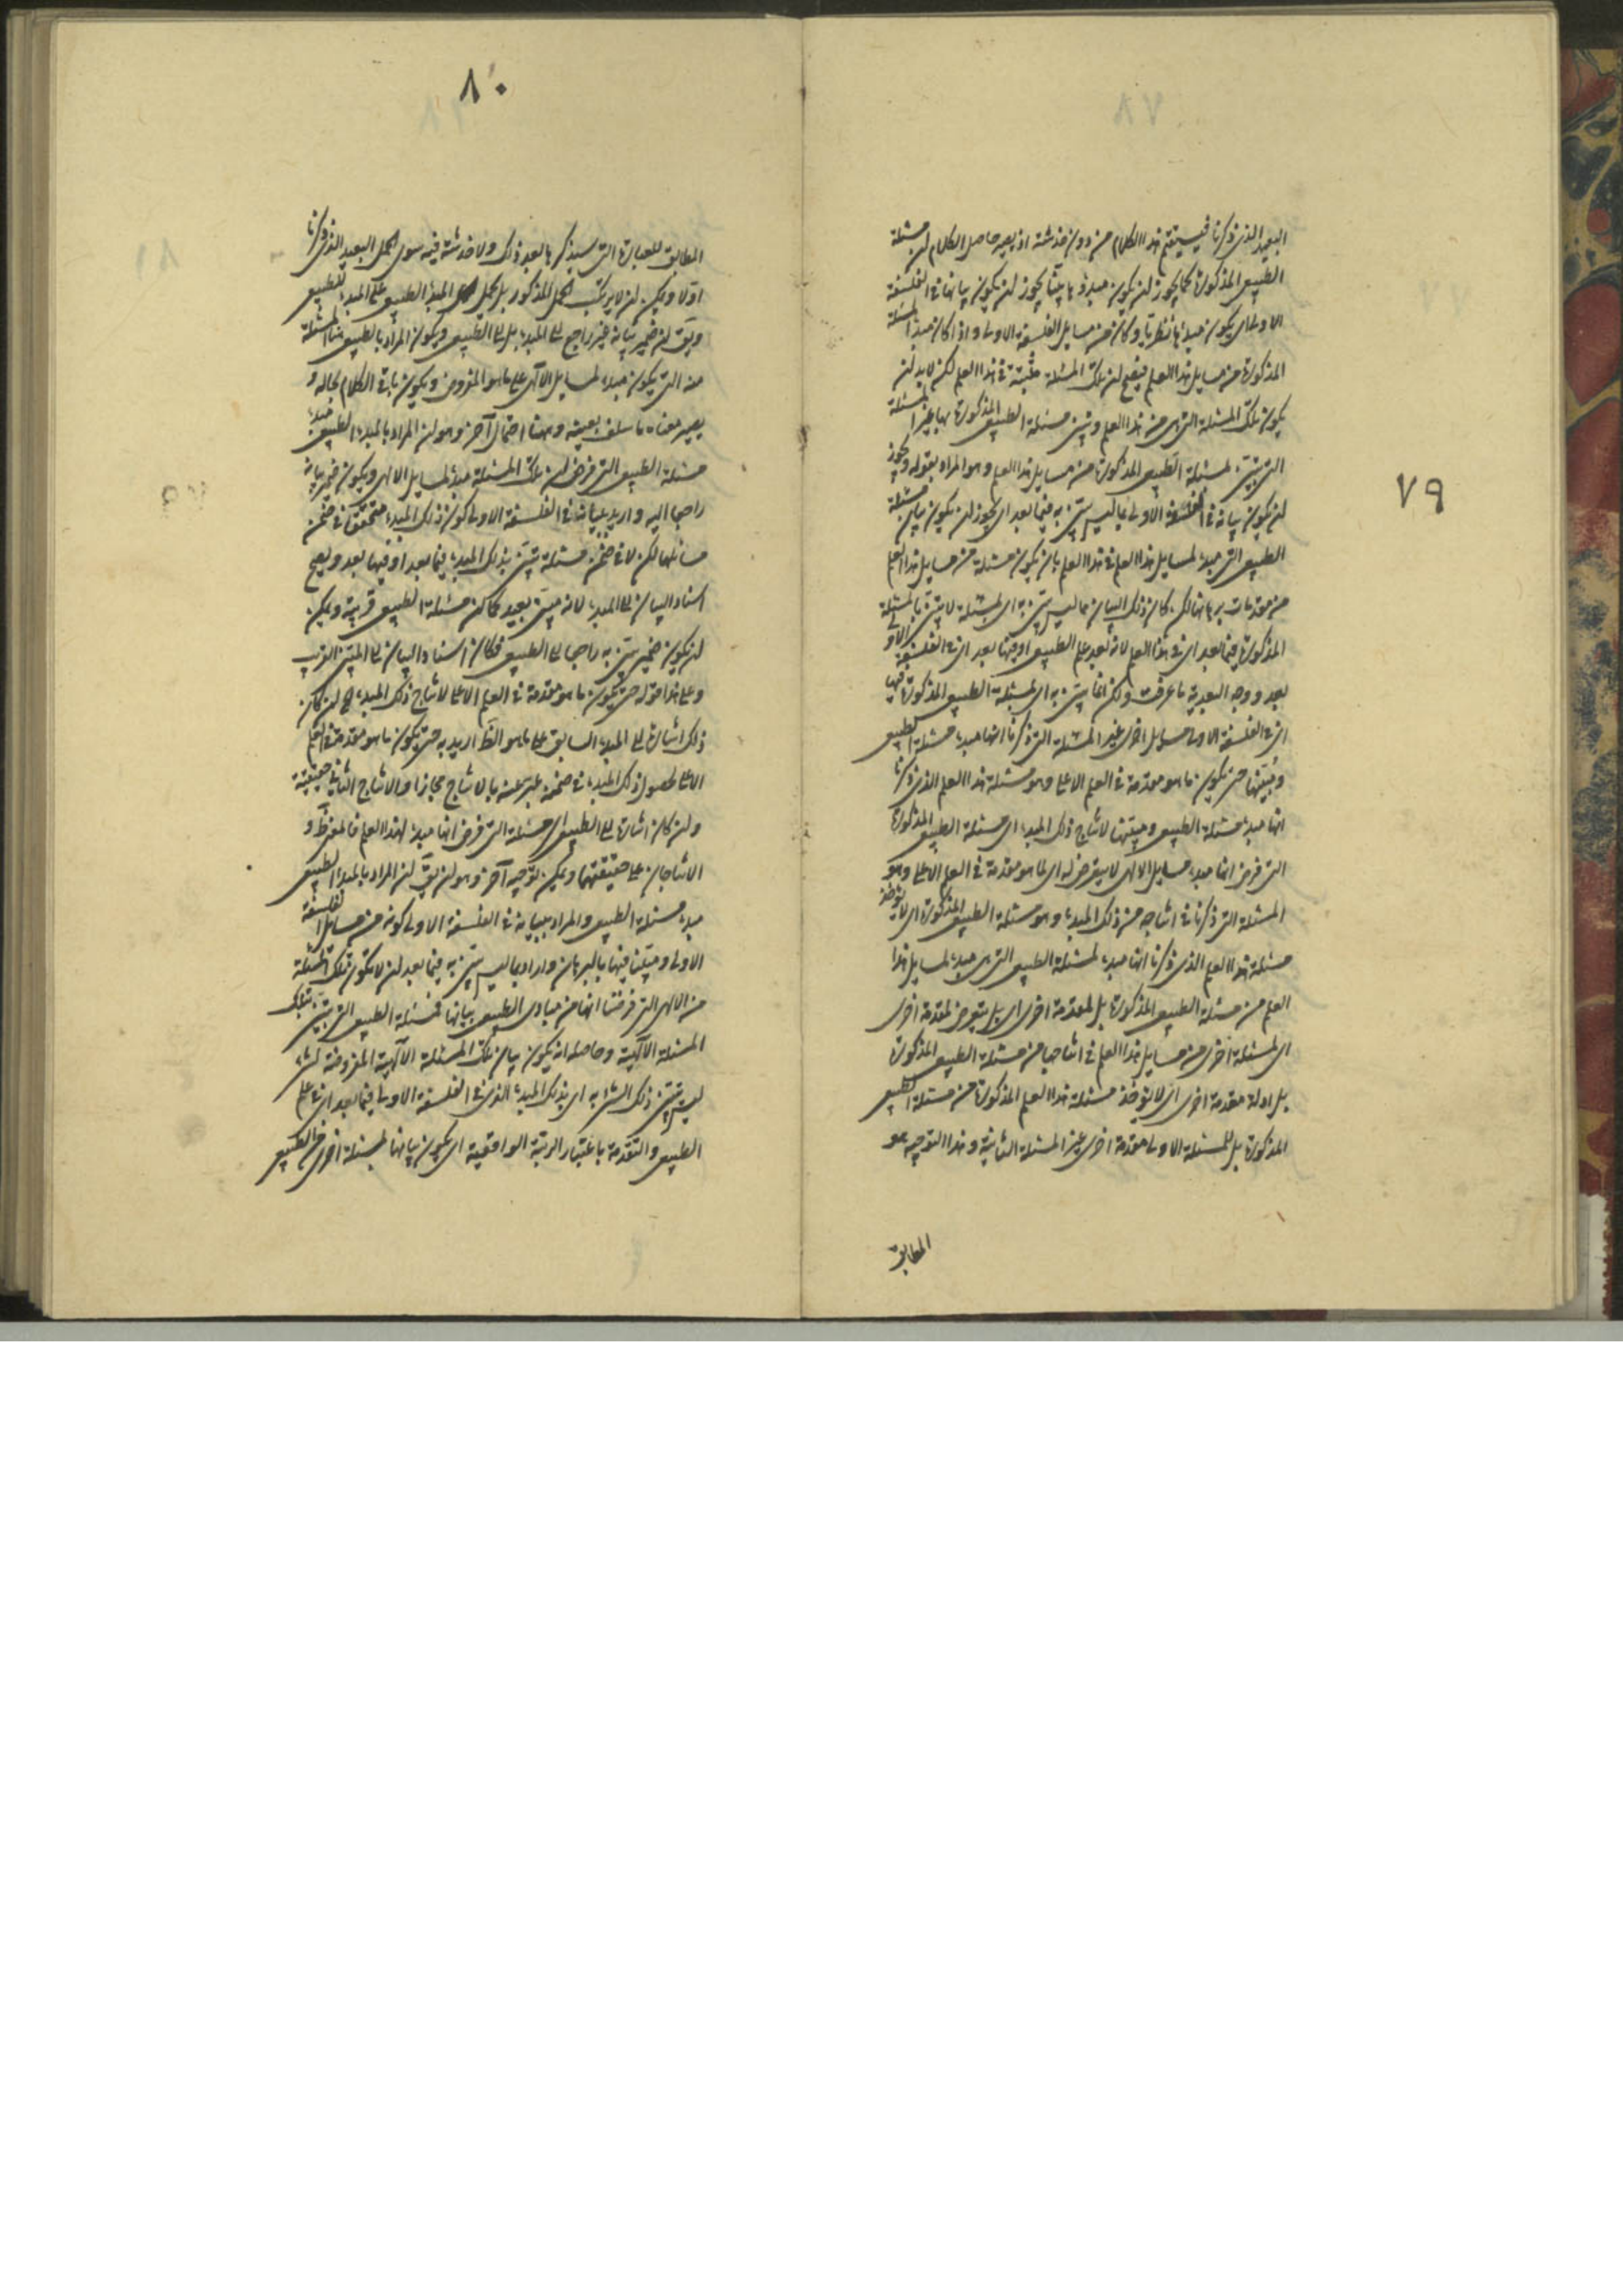 ٧٩
البعيد الذى ذكرنا فيستقيم هذا الكلام من دون خدشة اذ يصير حاصل الكلام ان مسئلة
الطبيعى المذكورة كما يجوز ان يكون مبدؤها بيّنا يجوز ان يكون بيانها فى الفلسفة
الاولى اى يكون مبدؤها نظريا وكان من مسايل الفلسفة الاولى واذا كان مبدأ المسئلة
المذكورة من مسايل هذا العلم فيصح ان تلك المسئلة مثبتة فى هذا العلم لكن لابد ان
يكون تلك المسئلة التى من هذا العلم وتبين مسئلة الطبيعى المذكورة بها غير المسئلة
التى تتبين بمسئلة الطبيعى المذكورة من مسايل هذا العلم وهو المراد بقوله ويجوز
ان يكون بيانه فى الفلسفة الاولى بما ليس يتبين به فيما بعد اى يجوز ان يكون بيان مسئلة
الطبيعى التى مبدء لمسايل هذا العلم فى هذا العلم بان يكون مسئلة من مسايل هذا العلم
من مقدمات برهانها لكن كان ذلك البيان بما ليس يتبين به اى بمسئلة لا يتبين بالمسئلة
المذكورة فيما بعد اى فى هذا العلم لانه بعد علم الطبيعى او فيها بعد اى فى الفلسفة الاولى
بعد ووجه البعدية ما عرفت ولكن انما يتبين به اى بمسئلة الطبيعى المذكورة فيها
اى فى الفلسفة الاولى مسايل اخرى غير المسئلة التى ذكرنا انها مبدء مسئلة الطبيعى
ومبيّنها حتى يكون ما هو مقدمة فى العلم الاعلى وهو مسئلة هذا العلم الذى ذكرنا
انها مبدء مسئلة الطبيعى ومبيّنها لانتاج ذلك المبدء اى مسئلة الطبيعى المذكورة
التى فرض انها مبدء مسايل الالهى لا يتعرض له اى لما هو مقدمة فى العلم الاعلى وهو
المسئلة التى ذكرنا فى انتاجه من ذلك المبدء وهو مسئلة الطبيعى المذكورة اى لا يؤخذ
مسئلة هذا العلم الذى ذكرنا انها مبدء لمسئلة الطبيعى التى هى مبدء لمسايل هذا
العلم من مسئلة الطبيعى المذكورة بل لمقدمة اخرى اى بل يتعرض لمقدمة اخرى
اى لمسئلة اخرى من مسايل هذا العلم فى انتاجها من مسئلة الطبيعى المذكورة
بل له مقدمة اخرى اى لا يؤخذ مسئلة هذا العلم المذكورة من مسئلة الطبيعى
المذكورة بل للمسئلة الاولى مقدمة اخرى غير المسئلة الثانية وهذا التوجيه هو
المطابق
٨٠
المطابق للعبارة التى سيذكرها بعد ذلك ولا خدشة فيه سوى الحمل البعيد الذى ذكرنا
اولا ويمكن ان لا يرتكب الحمل المذكور بل يحمل المبدأ الطبيعى على المبدء للطبيعى
ويق ان ضمير بيانه غير راجع الى المبدء بل الى الطبيعى ويكون المراد بالطبيعى هنا المسئلة
منه التى يكون مبدء لمسايل الالهى على ما هو المفروض ويكون باقى الكلام بحاله و
يصير معناه ما سلف بعينه وههنا احتمال آخر وهو ان المراد بالمبدء الطبيعى مبدء
مسئلة الطبيعى التى فرض ان تلك المسئلة مبدء لمسايل الالهى ويكون ضمير بيانه
راجعا اليه واريد ببيانه فى الفلسفة الاولى كون ذلك المبدء متحققا فى ضمن
مسائلها لكن لا فى ضمن مسئلة يتبين بذلك المبدء فيما بعد او فيها بعد ويصح
اسناد البيان الى المبدء لانه مبيّن بعيد كما كن مسئلة الطبيعى قريبة ويمكن
ان يكون ضمير يتبين به راجعا الى الطبيعى فكان اسناد البيان الى المبيّن القريب
وعلى هذا قوله حتى يكون ما هو مقدمة فى العلم الاعلى لانتاج ذلك المبدء اى ان كان
ذلك اشارة الى المبدء السابق على ما هو الظ اريد به حتى يكون ما هو مقدمة فى العلم
الاعلى لحصول ذلك المبدء فى ضمنه عبر عنه بالانتاج مجازا والانتاج الثانى حقيقية
وان كان اشارة الى الطبيعى اى مسئلة التى فرض انها مبدء لهذا العلم فالمعنى ظ و
الانتاجان على حقيقتهما ويمكن توجيه آخر وهو ان يق ان المراد بالمبدء الطبيعى
مبدء مسئلة الطبيعى والمراد ببيانه فى الفلسفة الاولى كونه من مسايل الفلسفة
الاولى ومبيّنا فيها بالبرهان واراد بما ليس يتبين به فيما بعد ان لا تكون تلك المسئلة
من الالهى التى فرضنا انها من مبادى الطبيعى بيانها بمسئلة الطبيعى التى يتبين بتلك
المسئلة الآلهية وحاصله انه يكون بيان تلك المسئلة الآلهية المفروضة لشئ
ليس يتبين ذلك الشئ به اى بذلك المبدء الذى فى الفلسفة الاولى فيما بعد اى فى علم
الطبيعى والتقدمة باعتبار الرتبة الواقعية اى يكون بيانها لمسئلة اخرى من الطبيعى